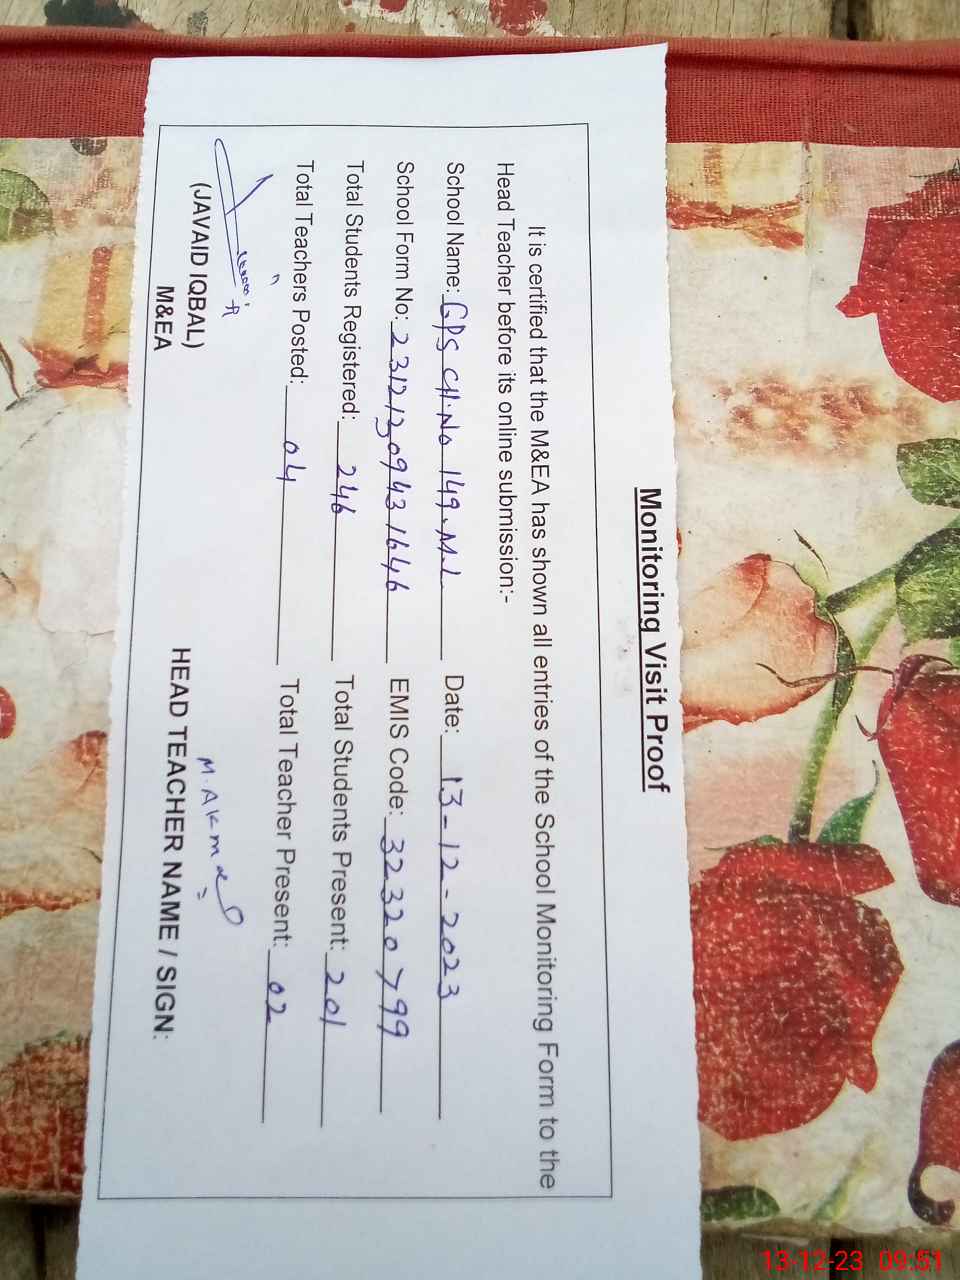 Monitoring Visit Proof
It is certified that the M&EA has shown all entries of the School Monitoring Form to the
Head Teacher before its online submission:-
School Name: GPS CH.No 149.M.L Date: 13-12-2023
School Form No: 231212309431646 EMIS Code: 32320799
Total Students Registered: 246 Total Students Present: 201
Total Teachers Posted: 04 Total Teacher Present: 02
M.Akmal
(JAVAID IQBAL) HEAD TEACHER NAME / SIGN:
M&EA
13-12-23 09:51